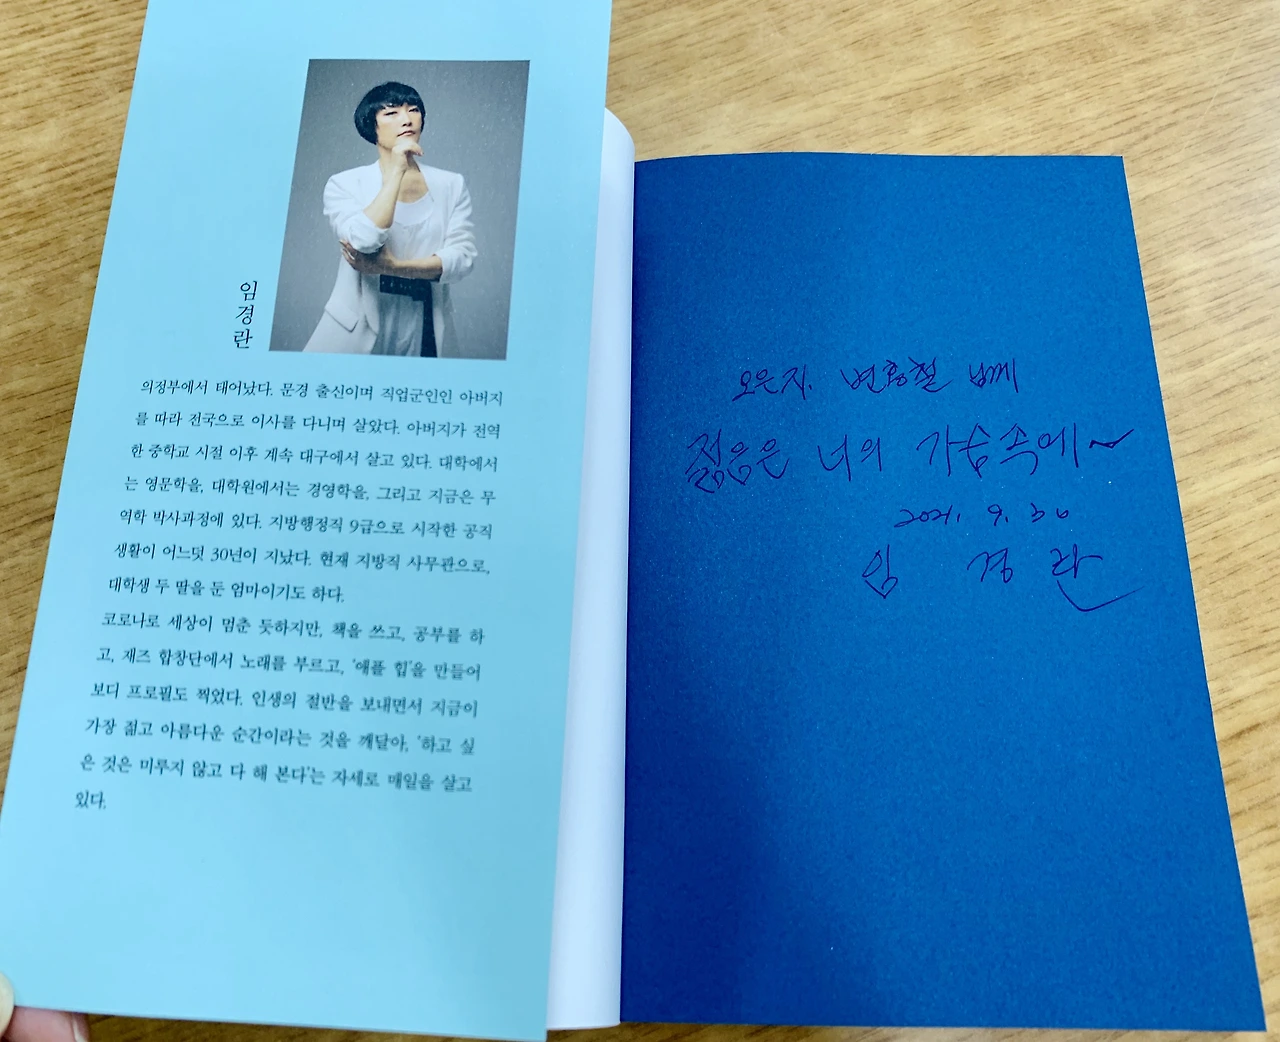 임경란
의정부에서 태어났다. 문경 출신이며 직업군인인 아버지
를 따라 전국으로 이사를 다니며 살았다. 아버지가 전역
한 중학교 시절 이후 계속 대구에서 살고 있다. 대학에서
는 영문학을, 대학원에서는 경영학을, 그리고 지금은 무
역학 박사과정에 있다. 지방행정직 9급으로 시작한 공직
생활이 어느덧 30년이 지났다. 현재 지방직 사무관으로,
대학생 두 딸을 둔 엄마이기도 하다.
코로나로 세상이 멈춘 듯하지만, 책을 쓰고, 공부를 하
고, 재즈 합창단에서 노래를 부르고, ‘애플 힙’을 만들어
보디 프로필도 찍었다. 인생의 절반을 보내면서 지금이
가장 젊고 아름다운 순간이라는 것을 깨달아, ‘하고 싶
은 것은 미루지 않고 다 해 본다’는 자세로 매일을 살고
있다.
오은지. 변홍철 님께
젊음은 너의 가슴속에~
2021. 9. 30
임 경 란